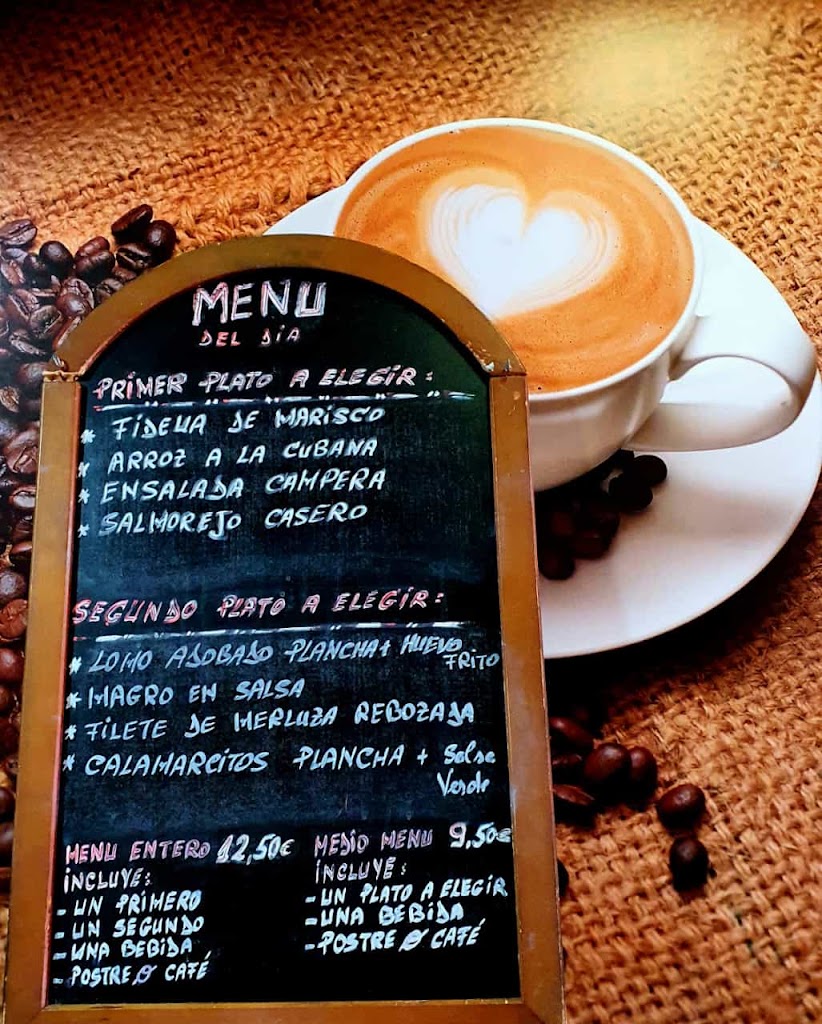 MENU
DEL DÍA
PRIMER PLATO A ELEGIR:
* FIDEUA DE MARISCO
* ARROZ A LA CUBANA
* ENSALADA CAMPERA
* SALMOREJO CASERO
SEGUNDO PLATO A ELEGIR:
* LOMO ADOBADO PLANCHA + HUEVO
FRITO
* MAGRO EN SALSA
* FILETE DE MERLUZA REBOZADA
* CALAMARCITOS PLANCHA + Salsa
Verde
MENU ENTERO 12,50€
INCLUYE:
- UN PRIMERO
- UN SEGUNDO
- UNA BEBIDA
- POSTRE O CAFÉ
MEDIO MENU 9,50€
INCLUYE:
- UN PLATO A ELEGIR
- UNA BEBIDA
- POSTRE O CAFÉ